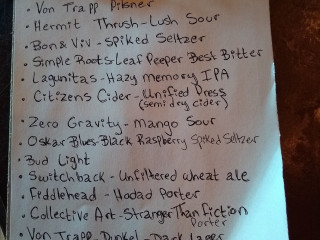 • Von Trapp Pilsner
• Hermit Thrush-Lush Sour
• Bon & Viv - Spiked Seltzer
• Simple Roots Leaf Peeper Best Bitter
• Lagunitas - Hazy Memory IPA
• Citizens Cider - Unified Press
(semi dry cider)
• Zero Gravity - Mango Sour
• Oskar Blues-Black Raspberry Spiked Seltzer
• Bud Light
• Switchback - Unfiltered wheat ale
• Fiddlehead - Hodad Porter
• Collective Art - Stranger Than fiction
Porter
• Von Trapp - Dunkel - Dark Lager